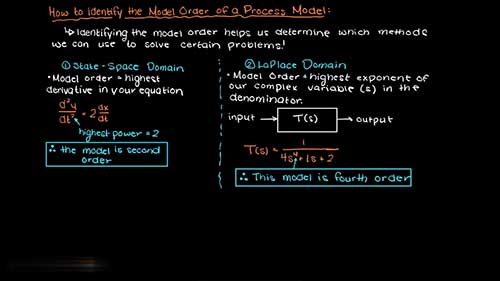 How to identify the Model Order of a Process Model:
↳ Identifying the model order helps us determine which methods
we can use to solve certain problems!
① State-Space Domain
• Model order = highest
derivative in your equation
d²y/dt² = 2 dx/dt
highest power = 2
∴ the model is second
order
② LaPlace Domain
• Model Order = highest exponent of
our complex variable (s) in the
denominator.
input → T(s) → output
T(s) = 1/(4s⁴+1s+2)
∴ This model is fourth order